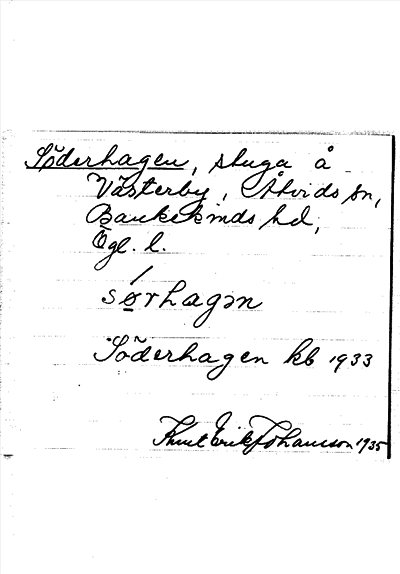 Söderhagen, stuga å
Västerby, Åtvids sn,
Bankekinds hd,
Ögl. l.
sǿ̱rhagən
Söderhagen kb 1933
Knut Erik Johansson 1935